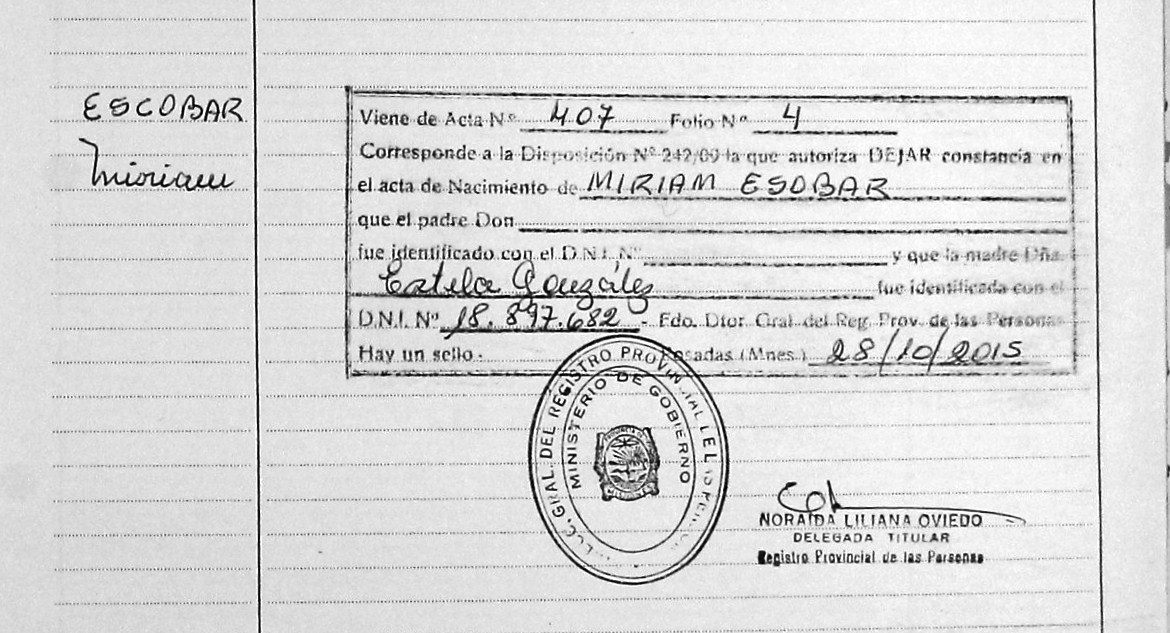 ESCOBAR
Miriam
Viene de Acta Nº 407 Folio Nº 4
Corresponde a la Disposición Nº 242/00 la que autoriza DEJAR constancia en
el acta de Nacimiento de MIRIAM ESCOBAR
que el padre Don
fue identificado con el D.N.I. Nº y que la madre Dña.
Estela González fue identificada con el
D.N.I. Nº 18.897.682 - Fdo. Dtor. Gral. del Reg. Prov. de las Personas
Hay un sello. Posadas (Mnes.) 28/10/2015
GRAL. DEL REGISTRO PROVINCIAL DE LAS
MINISTERIO DE GOBIERNO
NORAIDA LILIANA OVIEDO
DELEGADA TITULAR
Registro Provincial de las Personas